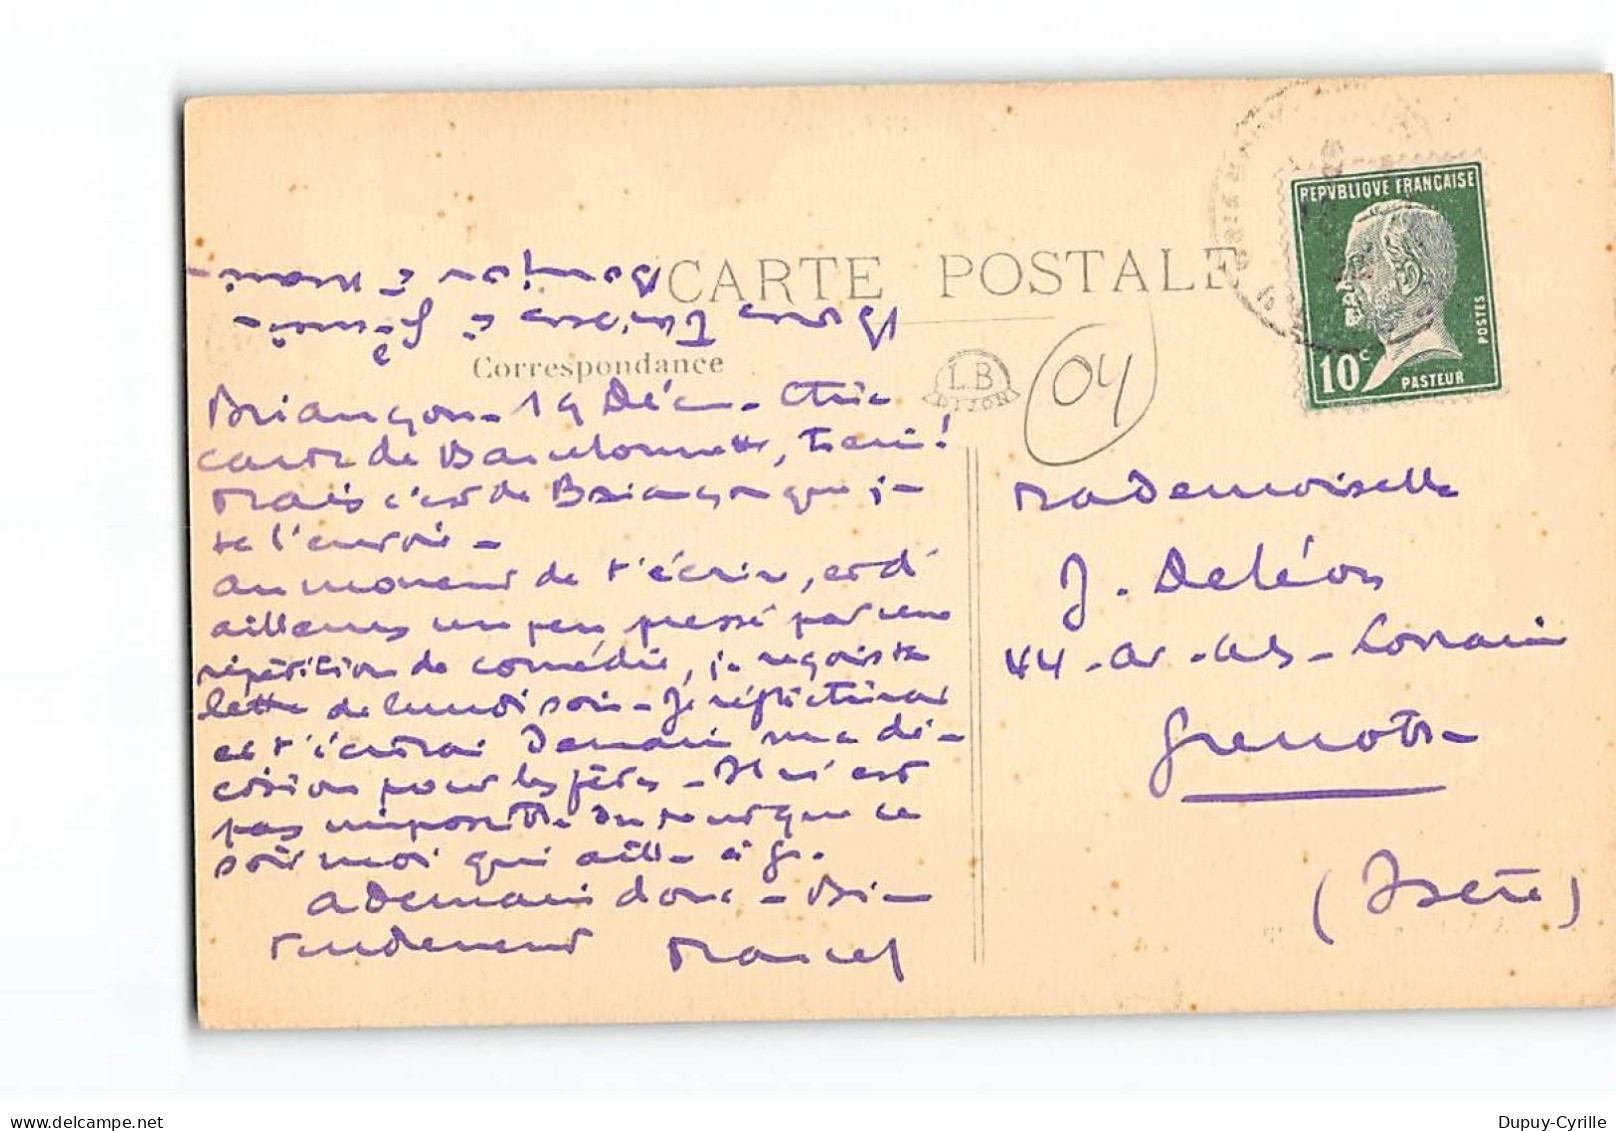 CARTE POSTALE
Correspondance
Bonjour à
Bons baisers à
Briançon - 19 Déc - Chic
carte de Barcelonnette, hein!
Mais c'est de Briançon que je
te l'envoie -
Au moment de t'écrire, et d'
ailleurs un peu pressé par une
répétition de comédie, je reçois ta
lettre de lundi soir - Je réfléchirai
et t'écrirai demain ma dé-
cision pour les fêtes - Il n'est
pas impossible du tout que ce
soit moi qui aille à G.
A demain donc - Bien
tendrement Marcel
LB
DIJON
04
REPVBLIQVE FRANÇAISE
POSTES
10c
PASTEUR
Mademoiselle
J. Deléon
44 - av - Als - Lorraine
Grenoble
(Isère)
www.delcampe.net
Dupuy-Cyrille